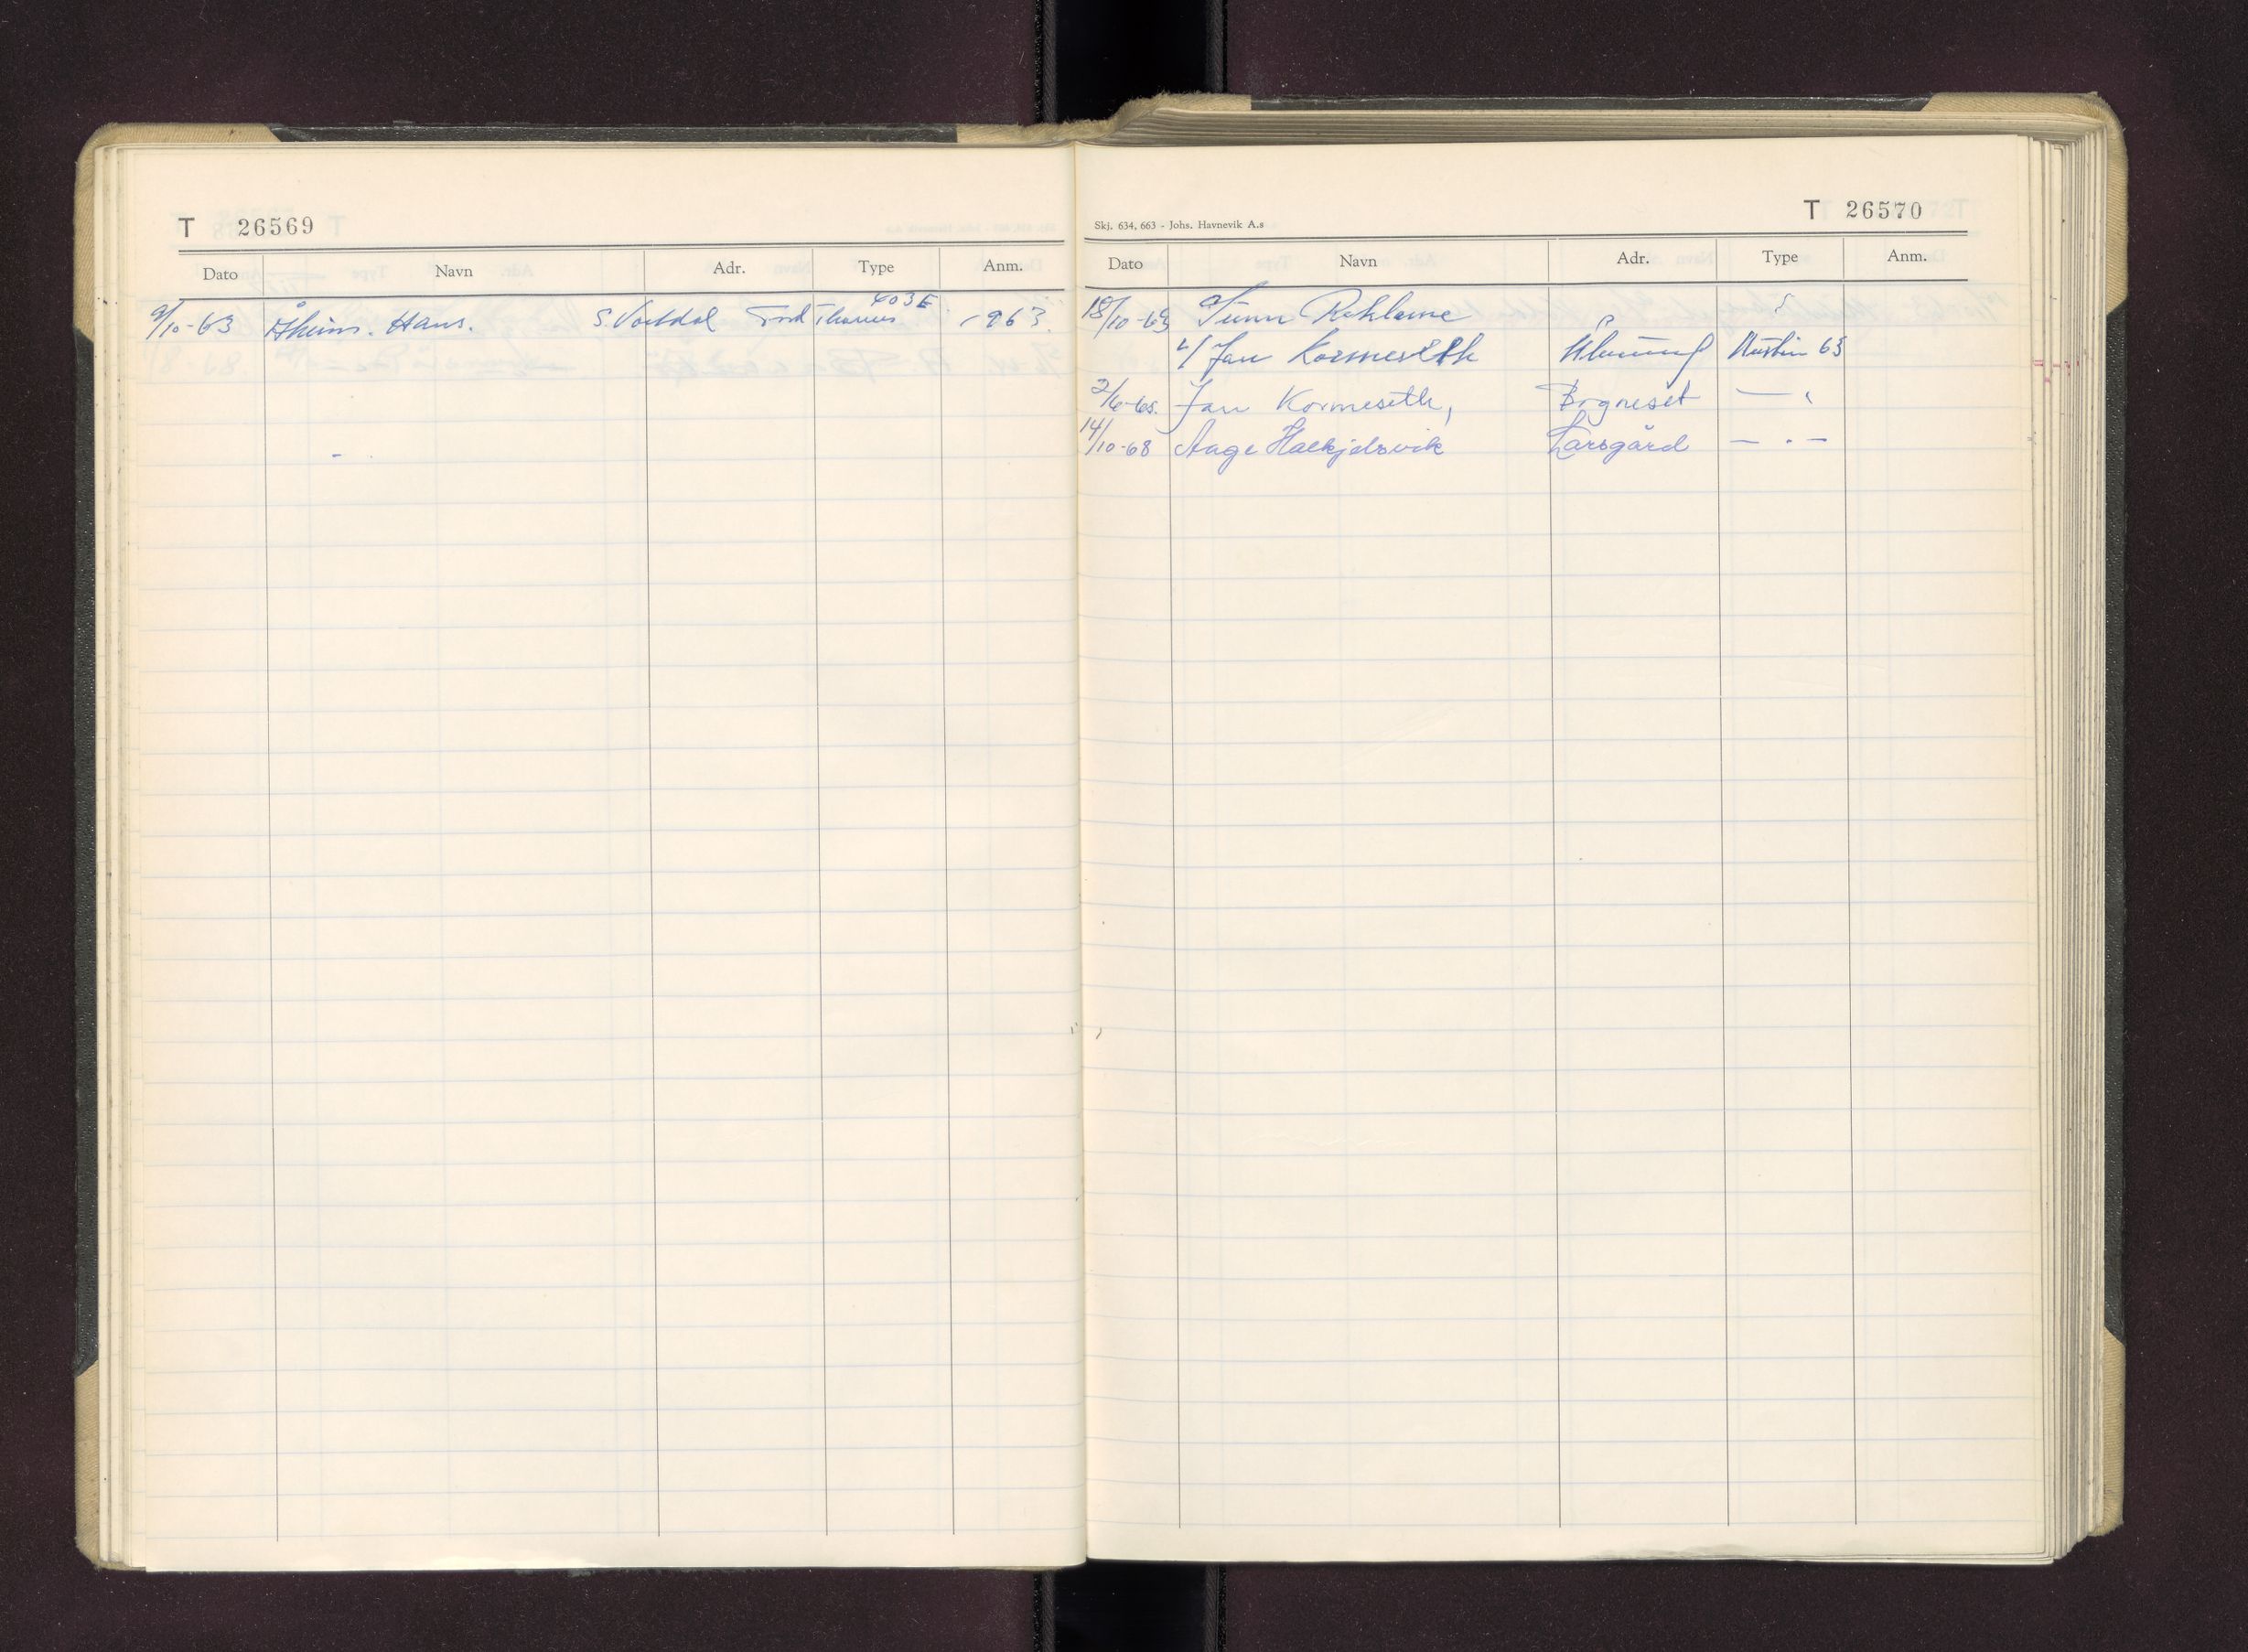 T 26569
Dato Navn Adr. Type Anm.
9/10-63 Åheim. Hans. S. Vartdal Ford Thames 403E -963.
Skj. 634, 663 - Johs. Havnevik A.s
T 26570
Dato Navn Adr. Type Anm.
18/10-63 Sunn Reklame
v/ Jan Kormeseth Ålesund Austin 63
2/6-65. Jan Kormeseth, Bogneset
14/10-68 Aage Halkjelsvik Larsgård — . —